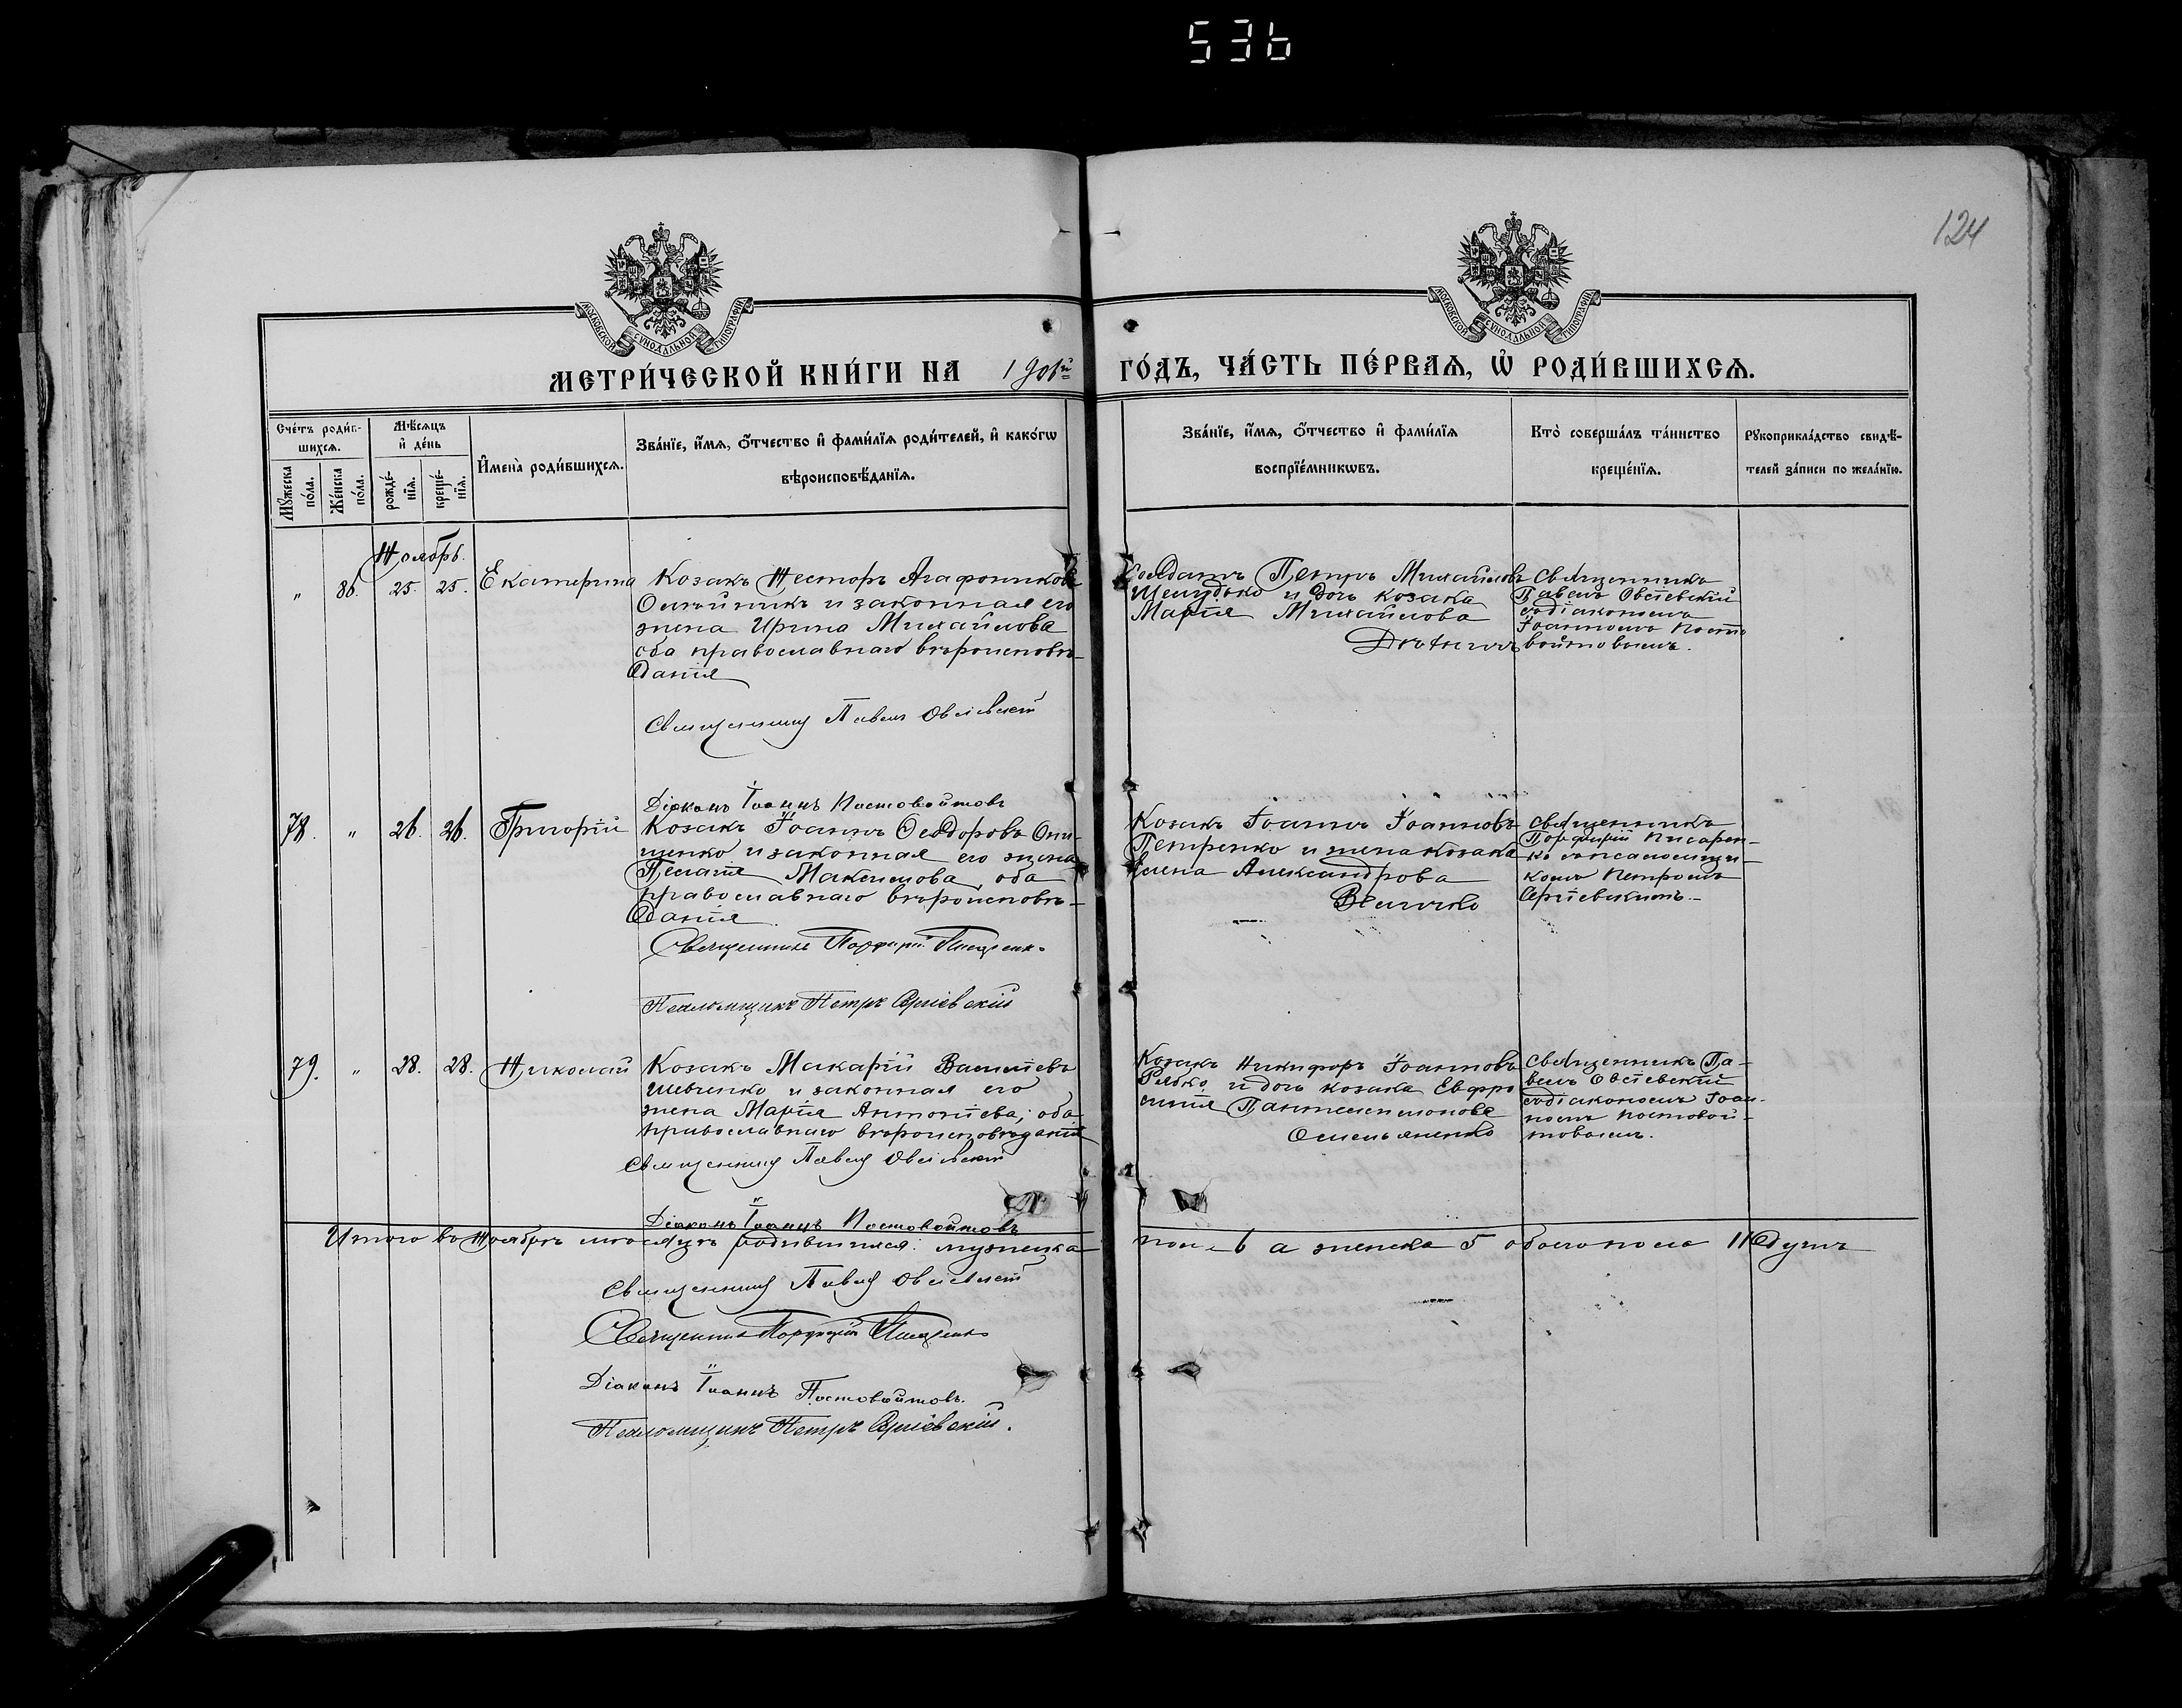 536
124
МОСКОВСКОЙ СУНОДАЛЬНОЙ ТИПОГРАФІИ
МОСКОВСКОЙ СУНОДАЛЬНОЙ ТИПОГРАФІИ
МЕТРИ́ЧЕСКОЙ КНИ́ГИ НА 190 ГО́ДЪ, ЧА́СТЬ ПЕ́РВАѦ, Ѡ҆ РОДИ́ВШИХСѦ.
Сче́тъ роди́в-
шихсѧ.
Мꙋ́жеска по́ла.
Же́нска по́ла.
Мѣ́сѧцъ и҆ де́нь
рожде́-нїѧ.
креще́-нїѧ.
И҆мена̀ роди́вшихсѧ.
Зва́нїе, и҆́мѧ, ѻ҆́тчество и҆ фами́лїѧ роди́телей, и҆ како́гѡ
вѣроисповѣ́данїѧ.
Зва́нїе, и҆́мѧ, ѻ҆́тчество и҆ фами́лїѧ
воспрїе́мникѡвъ.
Кто̀ соверша́лъ та́инство
креще́нїѧ.
Рꙋкоприкла́дство свидѣ́-
телей за́писи по жела́нїю.
Ноябрь.
" 86. 25. 25. Екатерина
Козакъ Несторъ Агафониковъ
Олѣйникъ и законная его
жена Ирина Михайлова
оба православнаго вѣроисповѣ-
данія
Священникъ Павелъ Овсіевскій
Діаконъ Іоаннъ Постовойтовъ
Солдатъ Петръ Михайловъ
Шелудько и дочь козака
Марія Михайлова
Священникъ
Павелъ Овсіевскій
содіакономъ
Іоанномъ Посто
войтовымъ.
78. " 26. 26. Григорій
Козакъ Іоаннъ Ѳеодоровъ Они-
щенко и законная его жена
Пелагія Максимова, оба
православнаго вѣроисповѣ-
данія
Священникъ Порфирій Писаренко
Псаломщикъ Петръ Сергіевскій
Козакъ Іоаннъ Іоанновъ
Петренко и жена козака
Елена Александрова
Величко
Священникъ
Порфирій Писарен-
ко сопсаломщи-
комъ Петромъ
Сергіевскимъ.
79. " 28. 28. Николай
Козакъ Макарій Василіевъ
Шевченко и законная его
жена Марія Антоніева, оба
православнаго вѣроисповѣданія
Священникъ Павелъ Овсіевскій
Діаконъ Іоаннъ Постовойтовъ
Козакъ Никифоръ Іоанновъ
Рядко и дочь козака Евфро
синія Пантелеимонова
Омельяненко
Священникъ Па-
велъ Овсіевскій
содіакономъ Іоан-
номъ Постовой-
товымъ.
Итого во Ноябрѣ мѣсяцѣ родившихся: мужеска пола 6 а женска 5 обоего пола 11 душъ
Священникъ Павелъ Овсіевскій
Священникъ Порфирій Писаренко
Діаконъ Іоаннъ Постовойтовъ.
Псаломщикъ Петръ Сергіевскій.